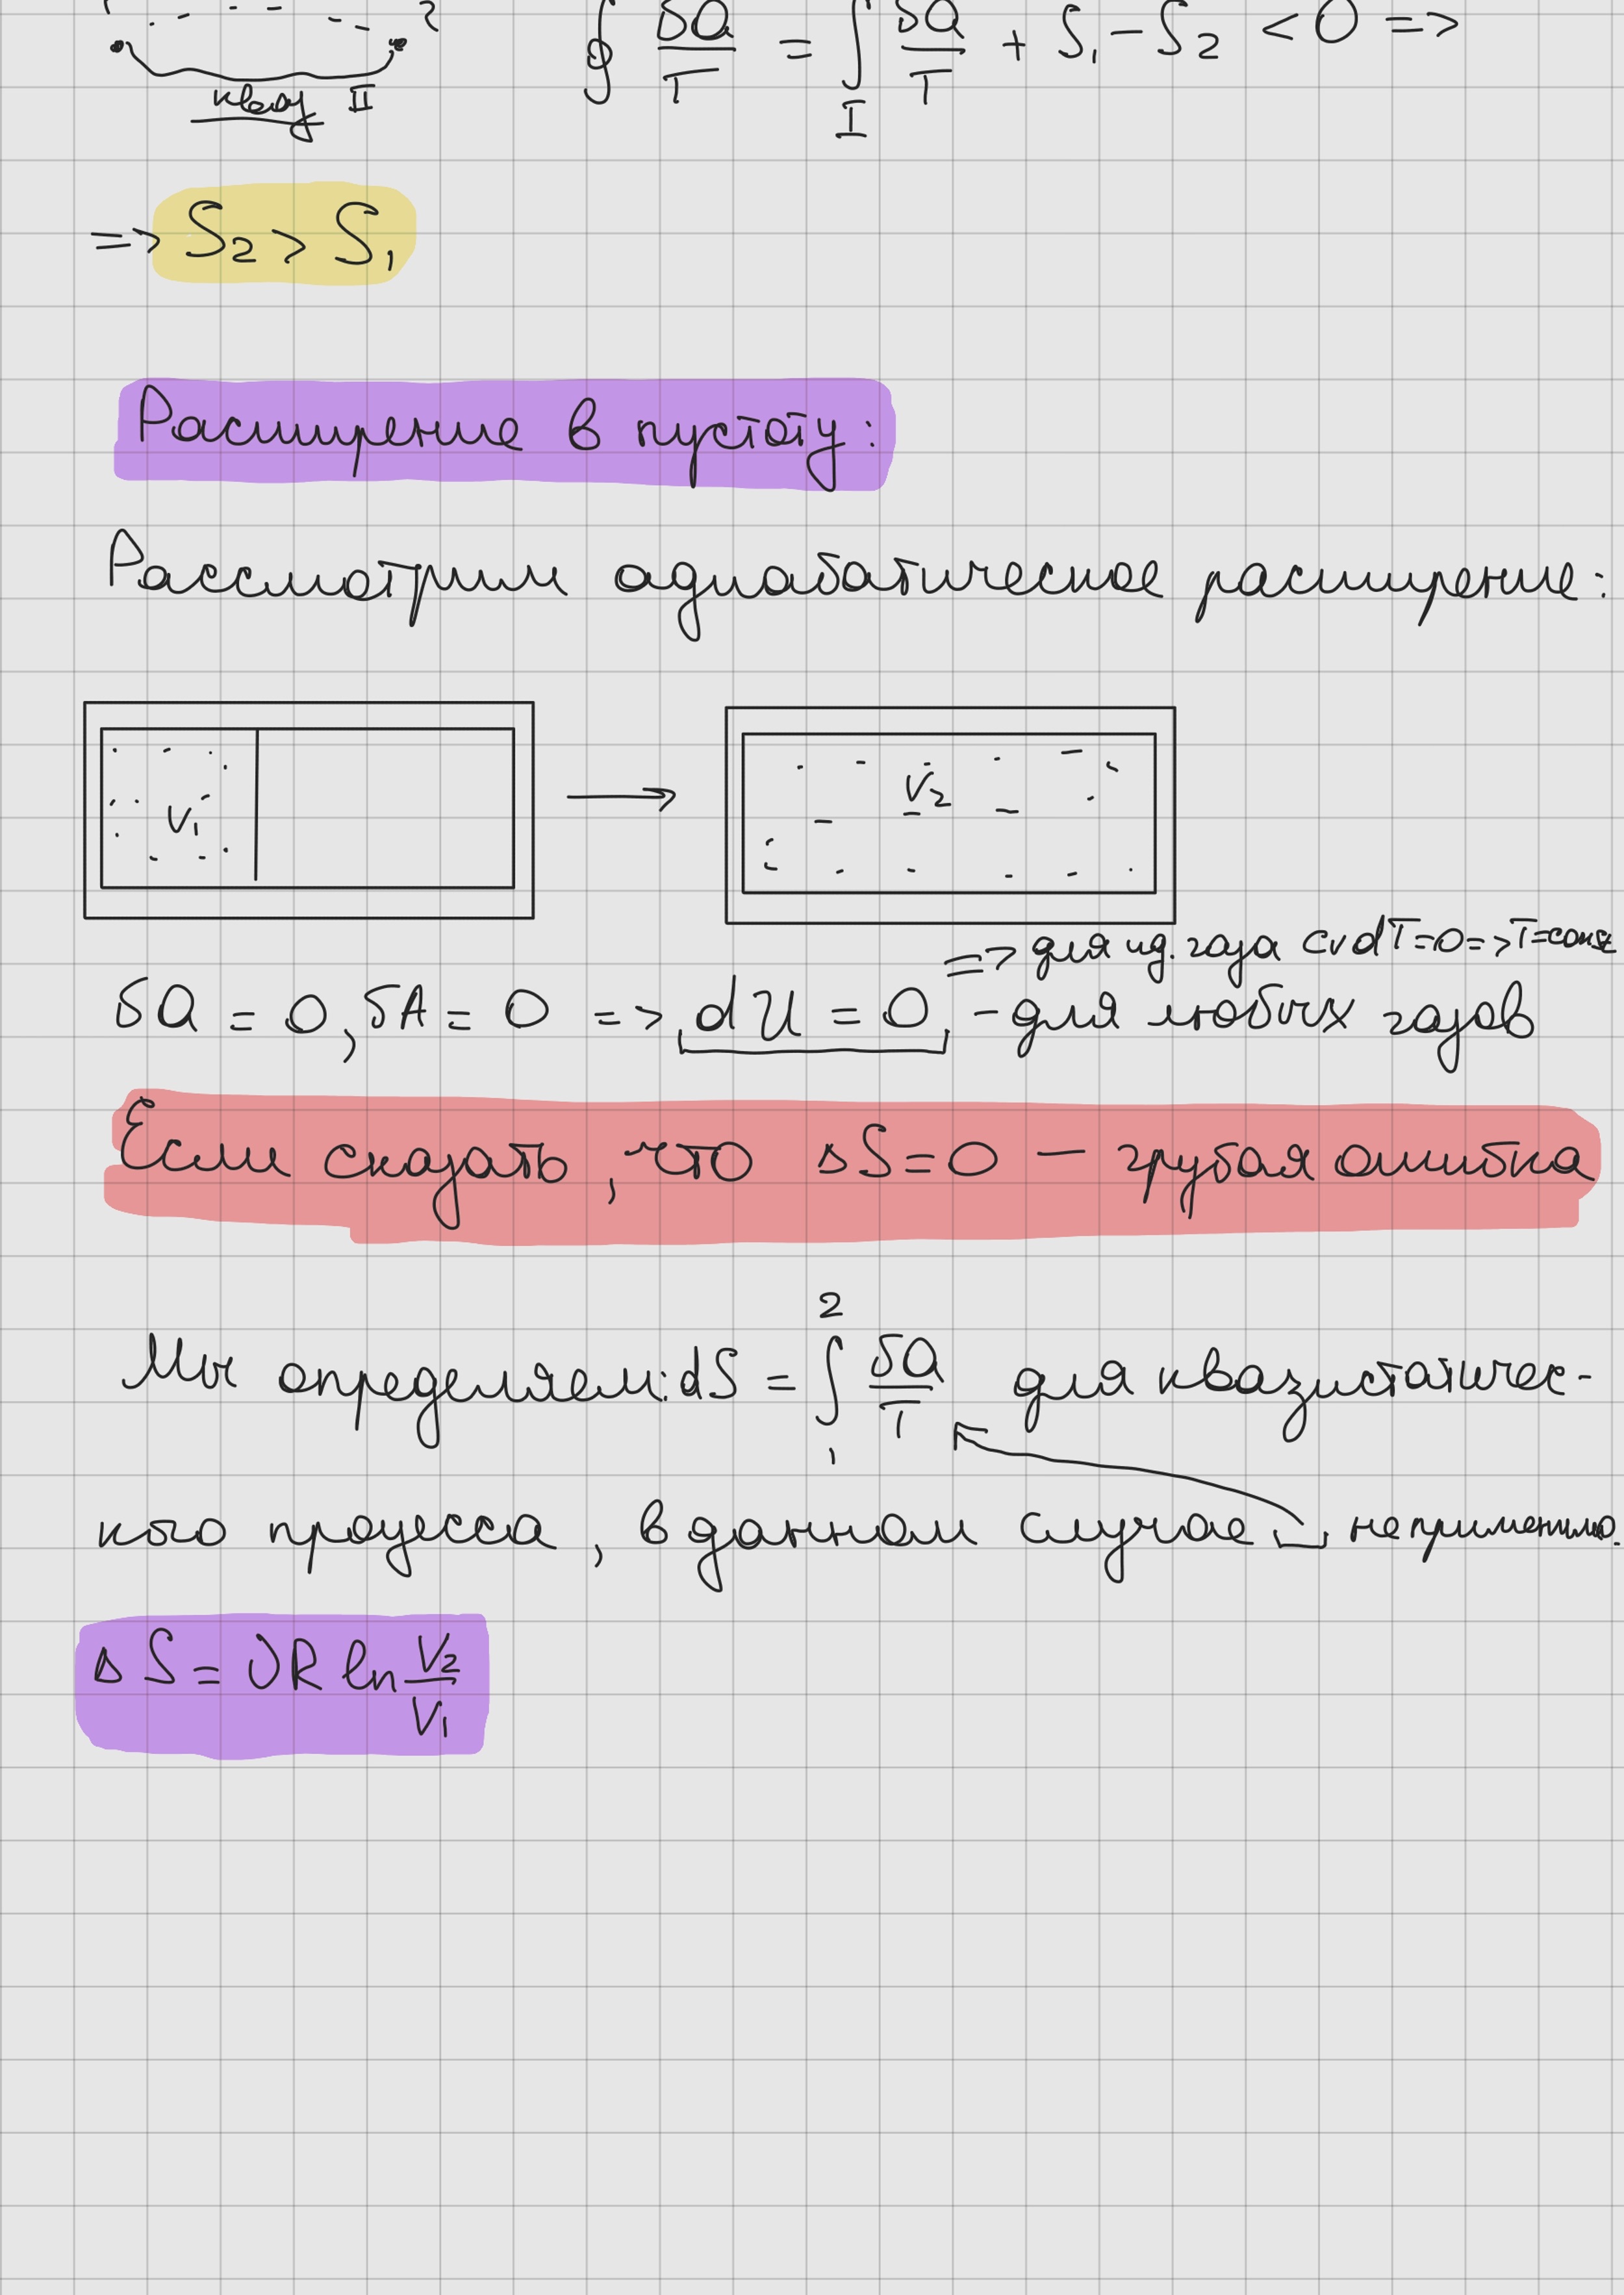 ∮ δQ/T = ∫_I δQ/T + S₁ - S₂ < 0 =>
квазу II
=> S₂ > S₁
Расширение в пустоту:
Рассмотрим адиабатическое расширение:
V₁ → V₂
=> для ид. газа CvdT=0=>T=const
δQ = 0, δA = 0 => dU = 0 - для любых газов
Если сказать, что ΔS=0 — грубая ошибка
Мы определяем: dS = ∫₁² δQ/T для квазистатичес-
кого процесса, в данном случае неприменимо.
ΔS = νR ln V₂/V₁